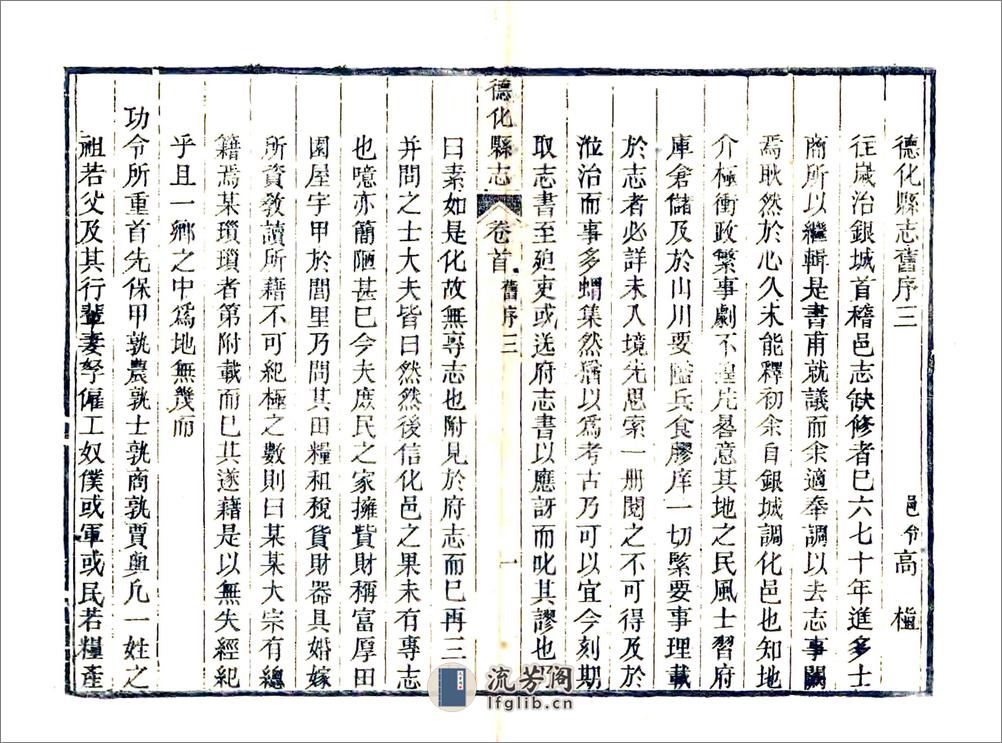 德化縣志舊序三
邑令高 植
往歲治銀城首稽邑志缺修者已六七十年進多士
商所以繼輯是書甫就議而余適奉調以去志事闕
焉耿然於心久未能釋初余自銀城調化邑也知地
介極衝政繁事劇不遑片晷意其地之民風士習府
庫倉儲及於山川要隘兵食膠庠一切緊要事理載
於志者必詳未入境先思索一册閱之不可得及於
涖治而事多蝟集然猶以爲考古乃可以宜今刻期
取志書至廹吏或送府志書以應訝而叱其謬也
曰素如是化故無專志也附見於府志而已再三
并問之士大夫皆曰然然後信化邑之果未有專志
也噫亦簡陋甚已今夫庶民之家擁貲財稱富厚田
園屋宇甲於閭里乃問其田糧和稅貨財器具婚嫁
所資敎讀所藉不可紀極之數則曰某某大宗有總
籍焉某瑣瑣者第附載而已其遂藉是以無失經紀
乎且一鄉之中爲地無幾而
功令所重首先保甲孰農孰士孰商孰賈與凡一姓之
祖若父及其行輩妻孥僱工奴僕或軍或民若糧產
德化縣志 卷首 舊序三 一
流芳阁
lfglib.cn